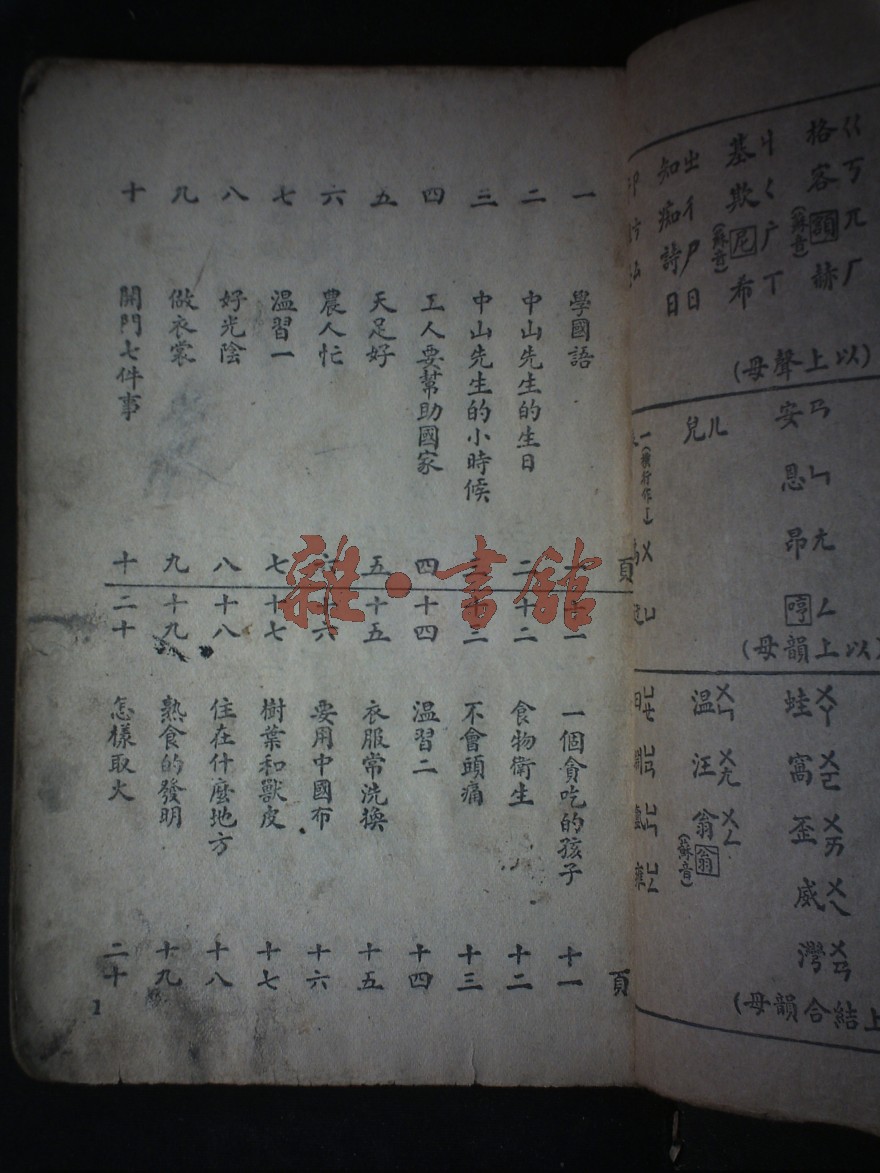 格客額赫
ㄍㄎㄫㄏ
(蘇音)
基欺尼希
ㄐㄑㄬㄒ
(蘇音)
知痴詩日
ㄓㄔㄕㄖ
(以上聲母)
安恩昂哼
ㄢㄣㄤㄥ
兒ㄦ
一(橫行作丨)
ㄨ
ㄩ
(以上韻母)
蛙窩歪威灣
ㄨㄚㄨㄛㄨㄞㄨㄟㄨㄢ
温汪翁翁
ㄨㄣㄨㄤㄨㄥ
(蘇音)
ㄩㄝㄩㄢㄩㄣㄩㄥ
上結合韻母)
頁
一 學國語 一
二 中山先生的生日 二
三 中山先生的小時候 三
四 工人要幫助國家 四
五 天足好 五
六 農人忙 六
七 温習一 七
八 好光陰 八
九 做衣裳 九
十 開門七件事 十
頁
十一 一個貪吃的孩子 十一
十二 食物衛生 十二
十三 不會頭痛 十三
十四 温習二 十四
十五 衣服常洗換 十五
十六 要用中國布 十六
十七 樹葉和獸皮 十七
十八 住在什麼地方 十八
十九 熟食的發明 十九
二十 怎樣取火 二十
1
雜·書舘